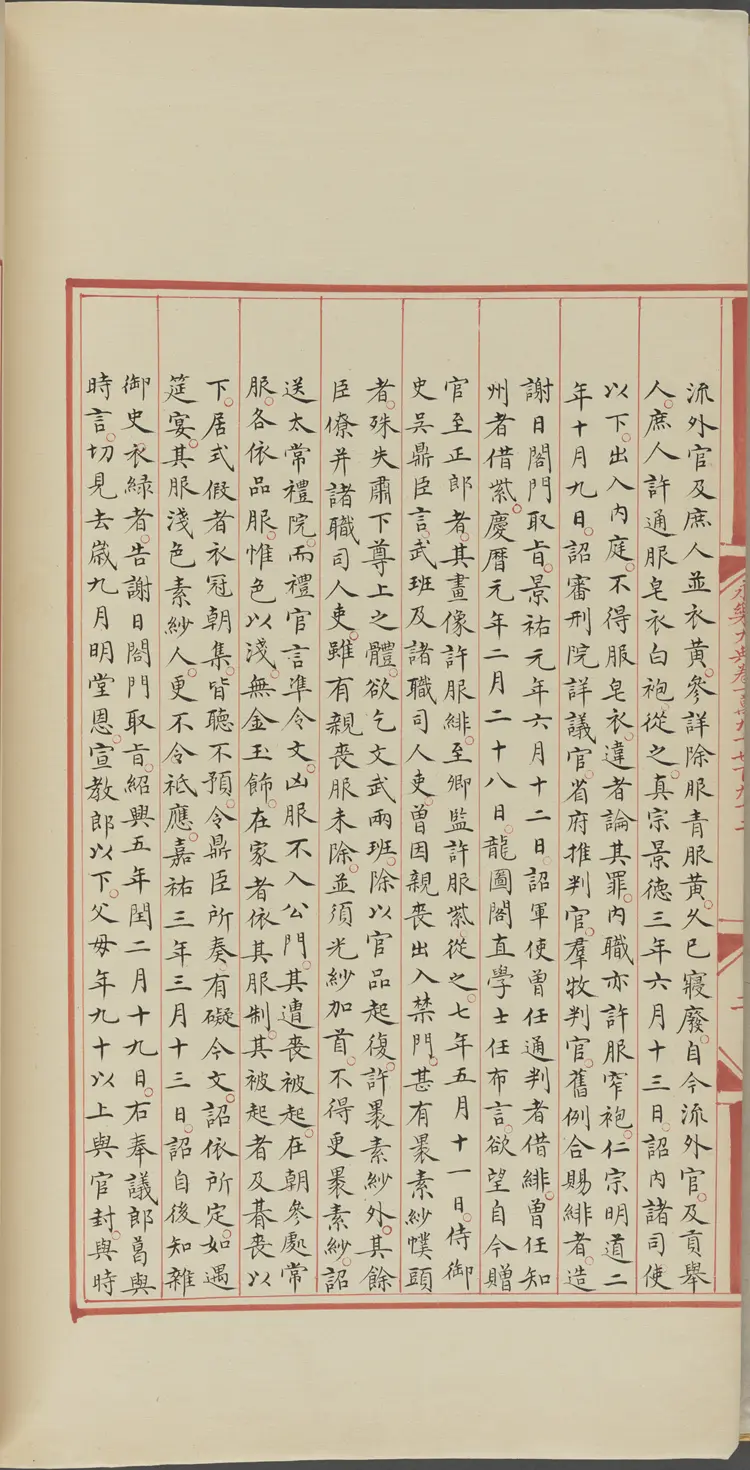 流外官及庶人並衣黃參詳除服青服黃久已寢廢自今流外官及貢舉
人庶人許通服皂衣白袍從之真宗景德三年六月十三日詔內諸司使
以下出入內庭不得服皂衣違者論其罪內職亦許服窄袍仁宗明道二
年十月九日詔審刑院詳議官省府推判官羣牧判官舊例合賜緋者造
謝日閤門取旨景祐元年六月十二日詔軍使曾任通判者借緋曾任知
州者借紫慶曆元年二月二十八日龍圖閣直學士任布言欲望自今贈
官至正郎者其畫像許服緋至卿監許服紫從之七年五月十一日侍御
史吳鼎臣言武班及諸職司人吏曾因親喪出入禁門甚有裹素紗幞頭
者殊失肅下尊上之體欲乞文武兩班除以官品起復許裹素紗外其餘
臣僚并諸職司人吏雖有親喪服未除並須光紗加首不得更裹素紗詔
送太常禮院而禮官言準令文凶服不入公門其遭喪被起在朝參處常
服各依品服惟色以淺無金玉飾在家者依其服制其被起者及朞喪以
下居式假者衣冠朝集皆聽不預令鼎臣所奏有礙令文詔依所定如遇
筵宴其服淺色素紗人更不令祗應嘉祐三年三月十三日詔自後知雜
御史衣綠者告謝日閤門取旨紹興五年閏二月十九日右奉議郎葛與
時言切見去歲九月明堂恩宣教郎以下父母年九十以上與官封與時